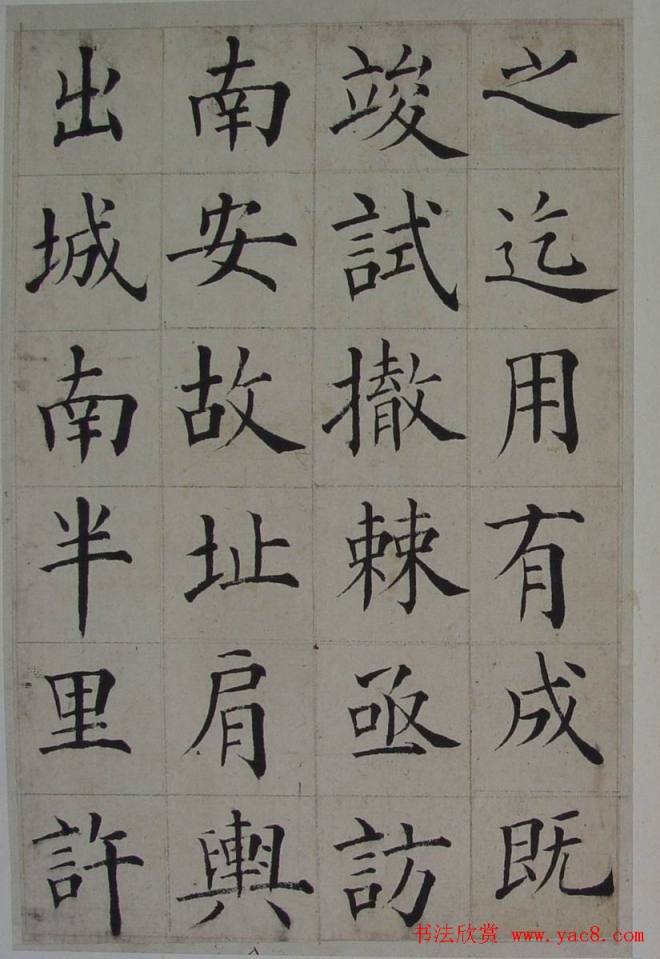 之迄用有成既
竣試撤棘亟訪
南安故址肩輿
出城南半里許
书法欣赏 www.yac8.com